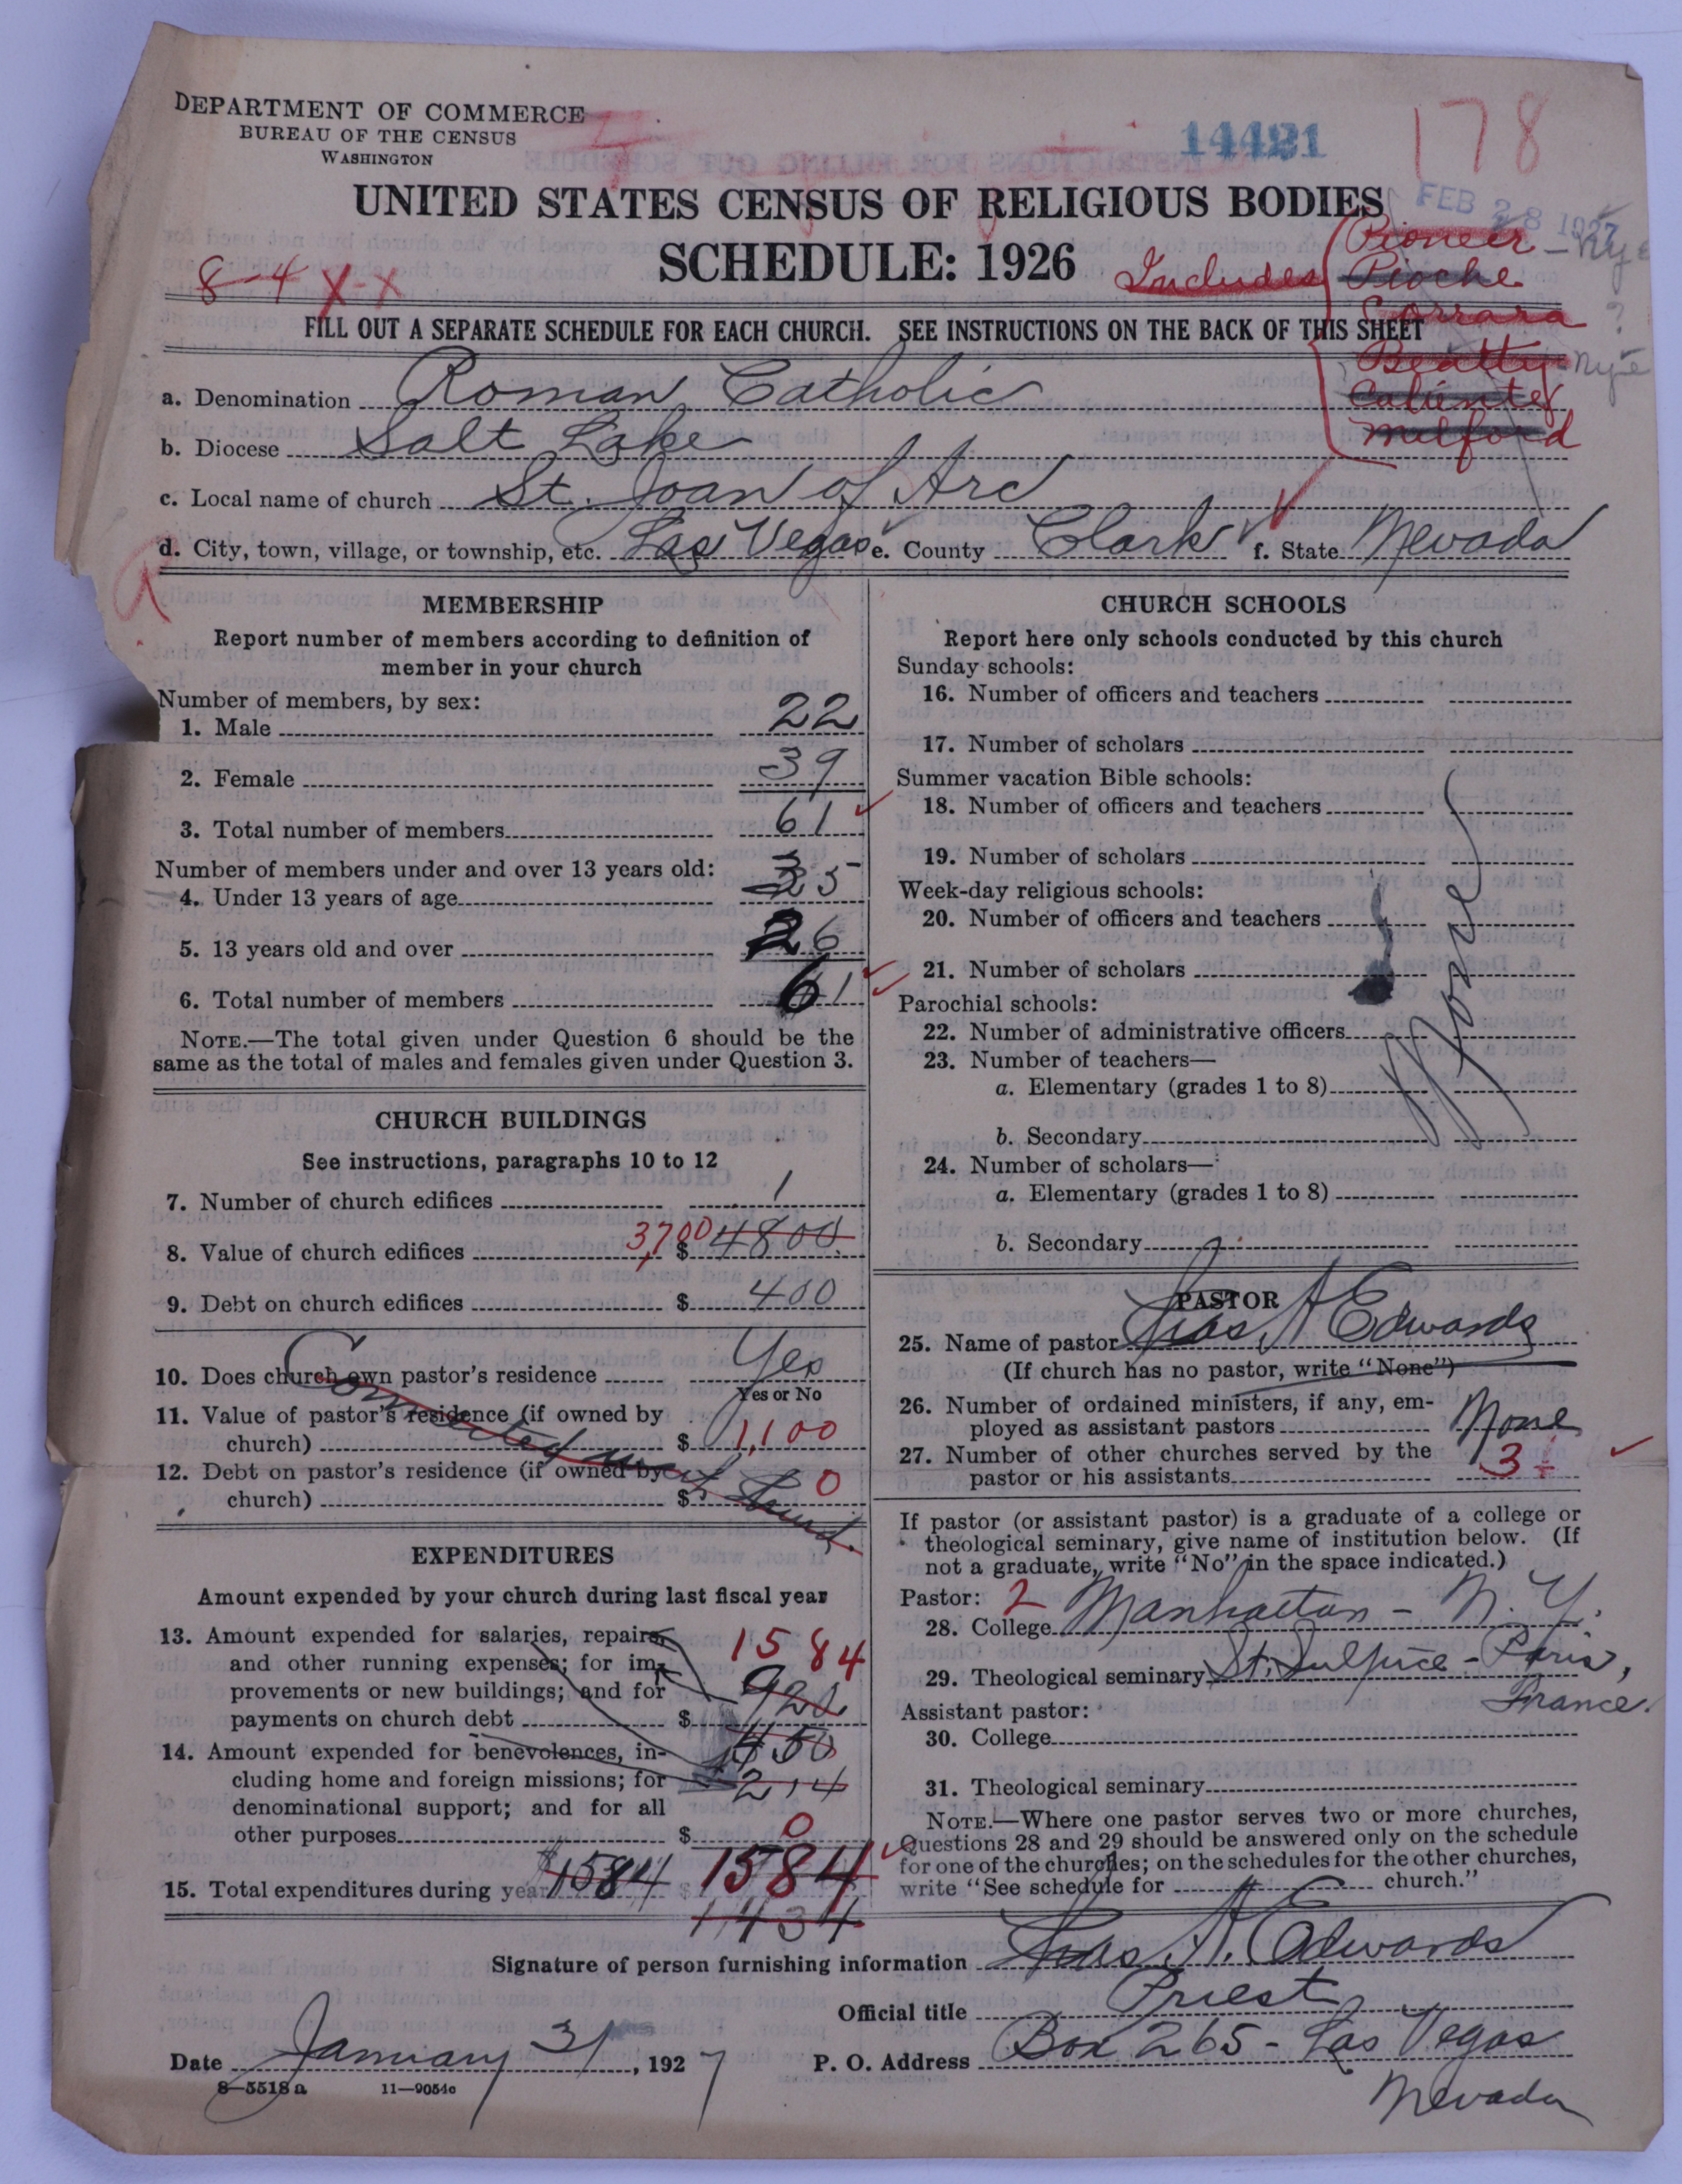 DEPARTMENT OF COMMERCE
BUREAU OF THE CENSUS
WASHINGTON
14421
178
FEB 28 1927
UNITED STATES CENSUS OF RELIGIOUS BODIES
SCHEDULE: 1926
8-4 X-X
Includes
Pioneer - Nye
Pioche
Carrara ?
Beatty - Nye
Caliente
Milford
FILL OUT A SEPARATE SCHEDULE FOR EACH CHURCH. SEE INSTRUCTIONS ON THE BACK OF THIS SHEET
a. Denomination Roman Catholic
b. Diocese Salt Lake
c. Local name of church St. Joan of Arc
d. City, town, village, or township, etc. Las Vegas e. County Clark f. State Nevada
MEMBERSHIP
Report number of members according to definition of
member in your church
Number of members, by sex:
1. Male 22
2. Female 39
3. Total number of members 61
Number of members under and over 13 years old:
4. Under 13 years of age 35
5. 13 years old and over 26
6. Total number of members 61
NOTE.—The total given under Question 6 should be the
same as the total of males and females given under Question 3.
CHURCH BUILDINGS
See instructions, paragraphs 10 to 12
7. Number of church edifices 1
8. Value of church edifices 3,700 $ 4800
9. Debt on church edifices $ 400
10. Does church own pastor's residence Yes
Yes or No
11. Value of pastor's residence (if owned by
church) $ 1,100
12. Debt on pastor's residence (if owned by
church) $ 0
Connected
EXPENDITURES
Amount expended by your church during last fiscal year
13. Amount expended for salaries, repairs,
and other running expenses; for im-
provements or new buildings; and for
payments on church debt $
1584
920
14. Amount expended for benevolences, in-
cluding home and foreign missions; for
denominational support; and for all
other purposes $ 0
450
214
15. Total expenditures during year $1584 $ 1584
1434
CHURCH SCHOOLS
Report here only schools conducted by this church
Sunday schools:
16. Number of officers and teachers
17. Number of scholars
Summer vacation Bible schools:
18. Number of officers and teachers
19. Number of scholars
Week-day religious schools:
20. Number of officers and teachers
21. Number of scholars
Parochial schools:
22. Number of administrative officers
23. Number of teachers—
a. Elementary (grades 1 to 8)
b. Secondary
24. Number of scholars—
a. Elementary (grades 1 to 8)
b. Secondary
None
PASTOR
25. Name of pastor Jas A Edwards
(If church has no pastor, write "None")
26. Number of ordained ministers, if any, em-
ployed as assistant pastors None
27. Number of other churches served by the
pastor or his assistants 3
If pastor (or assistant pastor) is a graduate of a college or
theological seminary, give name of institution below. (If
not a graduate, write "No" in the space indicated.)
Pastor: 2
28. College Manhattan - N. Y.
29. Theological seminary St. Sulpice - Paris,
France.
Assistant pastor:
30. College
31. Theological seminary
NOTE.—Where one pastor serves two or more churches,
Questions 28 and 29 should be answered only on the schedule
for one of the churches; on the schedules for the other churches,
write "See schedule for church."
Signature of person furnishing information Jas A. Edwards
Official title Priest
Date January 31, 1927
P. O. Address Box 265 - Las Vegas
Nevada
8-5518 a 11-9054c